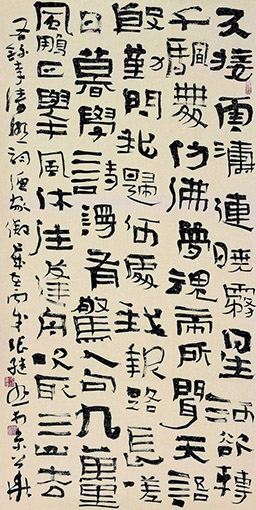 天接雲濤連曉霧星河欲轉
千颿舞仿佛夢魂帝所聞天語
殷勤問我歸何處我報路長嗟
日暮學詩謾有驚人句九萬里
風鵬正舉風休住蓬舟吹取三山去
右錄李清照詞漁家傲歲在丙 張繼